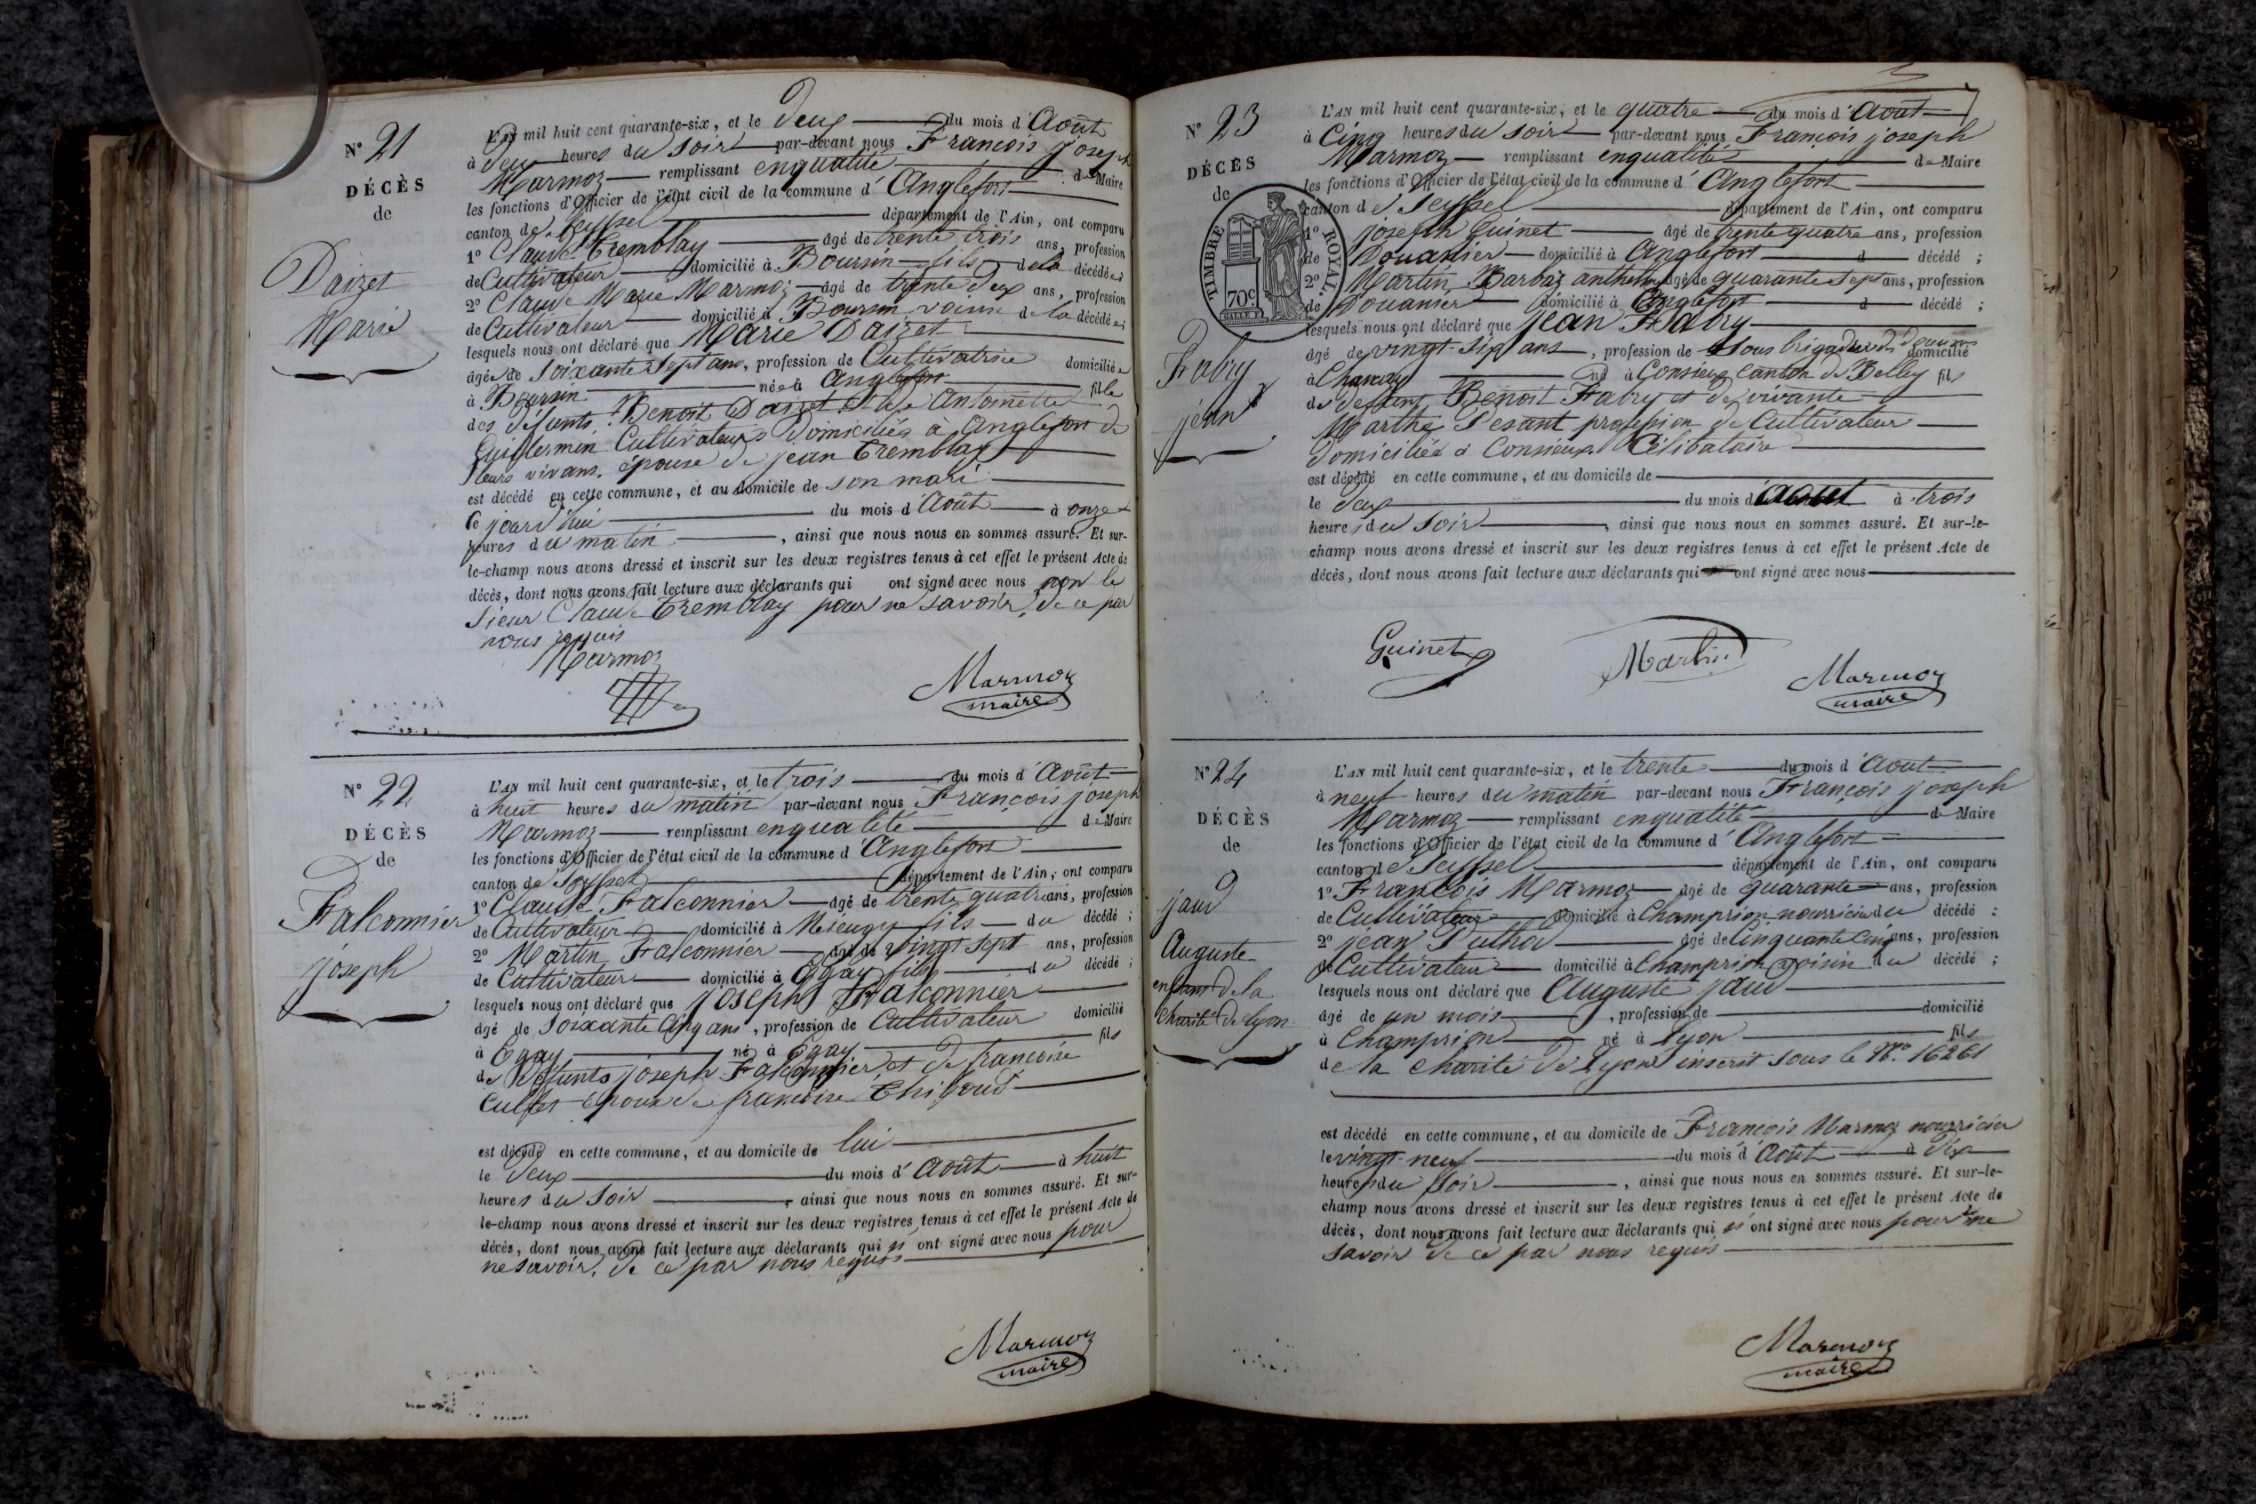 N° 21
DÉCÈS
de
Daizet
Marie
L'AN mil huit cent quarante-six, et le Deux du mois d'Août
à Deux heures du Soir par-devant nous François joseph
Marmoz remplissant enqualité de Maire
les fonctions d'Officier de l'état civil de la commune d'Anglefort
canton de Seyssel département de l'Ain, ont comparu
1° Claude Tremblay âgé de trente trois ans, profession
de Cultivateur domicilié à Boursin fils de la décédée ;
2° Claude Marie Marmoz âgé de trente Deux ans, profession
de Cultivateur domicilié à Boursin voisin de la décédée ;
lesquels nous ont déclaré que Marie Daizet
âgée de Soixante Sept ans, profession de Cultivatrice domiciliée
à Boursin née à Anglefort fille
des défunts Benoit Daizet et de Antoinette
Guillermin Cultivateurs Domiciliés à Anglefort de
leurs vivans. épouse de jean Tremblay
est décédé en cette commune, et au domicile de son mari
le jourd'hui du mois d'Août à onze
heures du matin, ainsi que nous nous en sommes assuré. Et sur-
le-champ nous avons dressé et inscrit sur les deux registres tenus à cet effet le présent Acte de
décès, dont nous avons fait lecture aux déclarants qui ont signé avec nous non le
Sieur Claude Tremblay pour ne savoir, de ce par
nous requis
Marmoz
Marmoz
maire
N° 22
DÉCÈS
de
Falconnier
joseph
L'AN mil huit cent quarante-six, et le trois du mois d'Août
à huit heures du matin par-devant nous François joseph
Marmoz remplissant enqualité de Maire
les fonctions d'Officier de l'état civil de la commune d'Anglefort
canton de Seyssel département de l'Ain, ont comparu
1° Claude Falconnier âgé de trente quatre ans, profession
de Cultivateur domicilié à fils du décédé ;
2° Martin Falconnier âgé de vingt sept ans, profession
de Cultivateur domicilié à Egay fils du décédé ;
lesquels nous ont déclaré que joseph Falconnier
âgé de Soixante Cinq ans, profession de Cultivateur domicilié
à Egay né à Egay fils
de Défunts joseph Falconnier et de françoise
Culfet Epoux de françoise Thigoud
est décédé en cette commune, et au domicile de lui
le Deux du mois d'Août à huit
heures du Soir, ainsi que nous nous en sommes assuré. Et sur-
le-champ nous avons dressé et inscrit sur les deux registres tenus à cet effet le présent Acte de
décès, dont nous avons fait lecture aux déclarants qui n'ont signé avec nous pour
ne savoir, de ce par nous requis
Marmoz
maire
N° 23
DÉCÈS
de
TIMBRE ROYAL
70c
Fabry
jean
L'AN mil huit cent quarante-six, et le quatre du mois d'Août
à Cinq heures du Soir par-devant nous François joseph
Marmoz remplissant enqualité de Maire
les fonctions d'Officier de l'état civil de la commune d'Anglefort
canton de Seyssel département de l'Ain, ont comparu
1° joseph Guinet âgé de trente quatre ans, profession
de Douanier domicilié à Anglefort d décédé ;
2° Martin Barbaz anthelme âgé de quarante Sept ans, profession
de Douanier domicilié à Anglefort d décédé ;
lesquels nous ont déclaré que Jean Fabry
âgé de vingt-six ans, profession de Sous brigadier des Douanes domicilié
à Chanay né à Consieux Canton de Belley fils
de deffunt Benoit Fabry et de vivante
Marthe Pesant profession de Cultivateur
Domiciliée à Consieux Célibataire
est décédé en cette commune, et au domicile de
le Deux du mois d'Août à trois
heures du Soir, ainsi que nous nous en sommes assuré. Et sur-le-
champ nous avons dressé et inscrit sur les deux registres tenus à cet effet le présent Acte de
décès, dont nous avons fait lecture aux déclarants qui ont signé avec nous
Guinet
Martin
Marmoz
maire
N° 24
DÉCÈS
de
jaud
Auguste
enfant de la
Charité de lyon
L'AN mil huit cent quarante-six, et le trente du mois d'Août
à neuf heures du matin par-devant nous François joseph
Marmoz remplissant enqualité de Maire
les fonctions d'Officier de l'état civil de la commune d'Anglefort
canton de Seyssel département de l'Ain, ont comparu
1° François Marmoz âgé de quarante ans, profession
de Cultivateur domicilié à Champrion nourricier du décédé ;
2° jean Puthod âgé de Cinquante Cinq ans, profession
de Cultivateur domicilié à Champrion voisin du décédé ;
lesquels nous ont déclaré que Auguste jaud
âgé de un mois, profession de domicilié
à Champrion né à lyon fils
de la Charité de lyon inscrit sous le N° 16261
est décédé en cette commune, et au domicile de François Marmoz nourricier
le vingt-neuf du mois d'Août à dix
heures du Soir, ainsi que nous nous en sommes assuré. Et sur-le-
champ nous avons dressé et inscrit sur les deux registres tenus à cet effet le présent Acte de
décès, dont nous avons fait lecture aux déclarants qui n'ont signé avec nous pour ne
savoir de ce par nous requis
Marmoz
maire